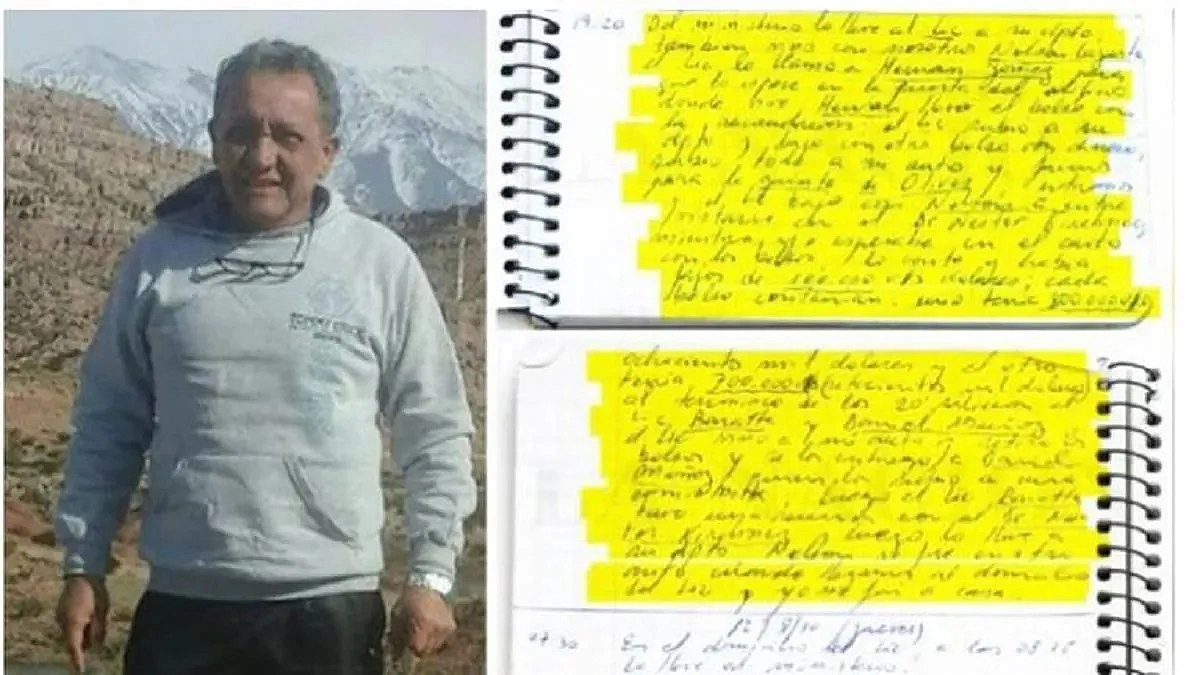 19:20 Del ministerio lo lleve al Lic a su dpto
tambien vino con nosotro Nelson Lazarte
el Lic lo llamo a Hernan Gomez para
que lo espere en la puerta del edificio
donde vive, Hernan llevo el bolso con
la recaudacion el Lic subio a su
dpto y bajo con otro bolso con dinero,
todo a mi auto y fuimos
para la quinta de Olivos,
Nestor
con el Dr Nestor Kirchner
mientras yo esperaba en el auto
con los bolsos lo conte y habia
fajos de 100.000 dolares, cada
bolso contenian. uno tenia 800.000 u/s
ochocientos mil dolares y el otro
tenia 700.000 (setecientos mil dolares)
al termino de los 20 minutos el
Lic Baratta y Daniel Muñoz
el Lic vino a mi auto y retiro los
bolsos y se los entrego a Daniel
Muñoz quien los llevo a una
Luego el Lic Baratta
tuvo una reunion con el Dr Nes
tor Kirchner y luego lo lleve a
su dpto Nelson se fue en otro
auto cuando llegamos al domicilio
del Lic y yo me fui a casa.
12/8/10 (jueves)
07:30 En el domicilio del Lic, a las 08:25
lo lleve al ministerio.